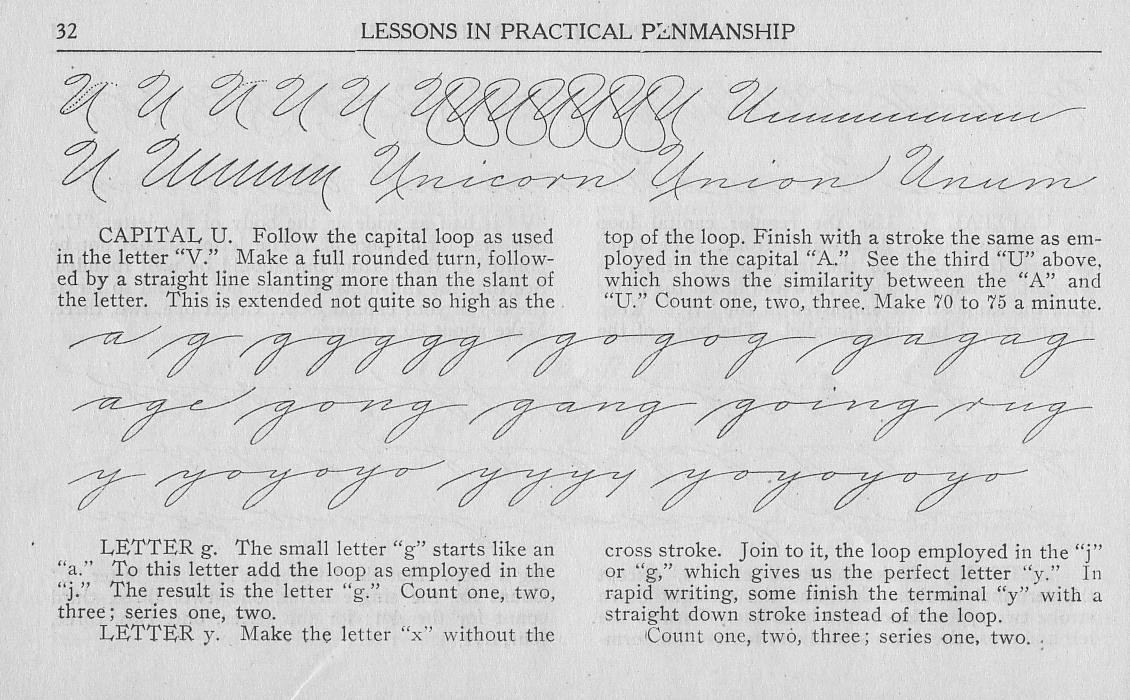 32 LESSONS IN PRACTICAL PENMANSHIP
U U U U U UUUUUUU Uuuuuuuuu
U. Uuuuuu Unicorn Union Unum
CAPITAL U. Follow the capital loop as used
in the letter “V.” Make a full rounded turn, follow-
ed by a straight line slanting more than the slant of
the letter. This is extended not quite so high as the
top of the loop. Finish with a stroke the same as em-
ployed in the capital “A.” See the third “U” above,
which shows the similarity between the “A” and
“U.” Count one, two, three. Make 70 to 75 a minute.
a g gggggg gogog gagag
age gong gang going rug
y yoyoyo yyyy yoyoyoyo
LETTER g. The small letter “g” starts like an
“a.” To this letter add the loop as employed in the
“j.” The result is the letter “g.” Count one, two,
three; series one, two.
LETTER y. Make the letter “x” without the
cross stroke. Join to it, the loop employed in the “j”
or “g,” which gives us the perfect letter “y.” In
rapid writing, some finish the terminal “y” with a
straight down stroke instead of the loop.
Count one, two, three; series one, two.